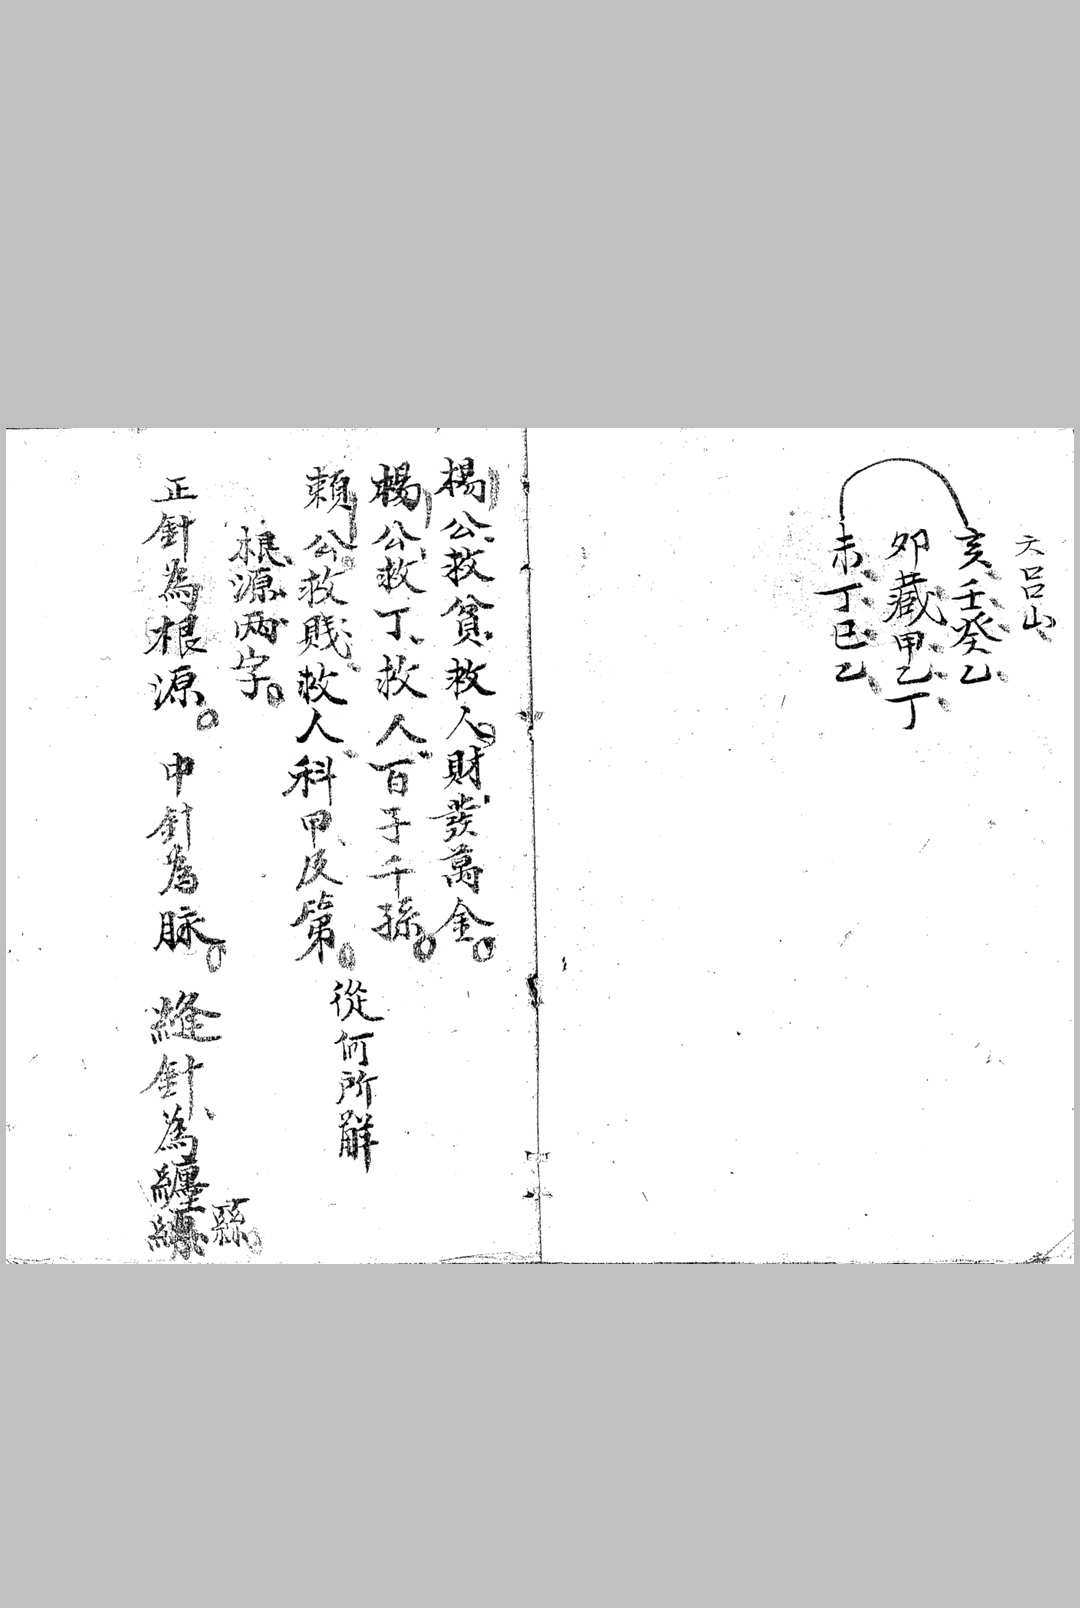 大呂山
亥壬癸乙
卯藏甲乙丁
未丁巳乙
楊公救貧救人財發萬金
楊公救丁救人百子千孫
賴公救賤救人科甲及第
從何所解
根源两字
正針為根源 中針為脉 縫針為纏
縣